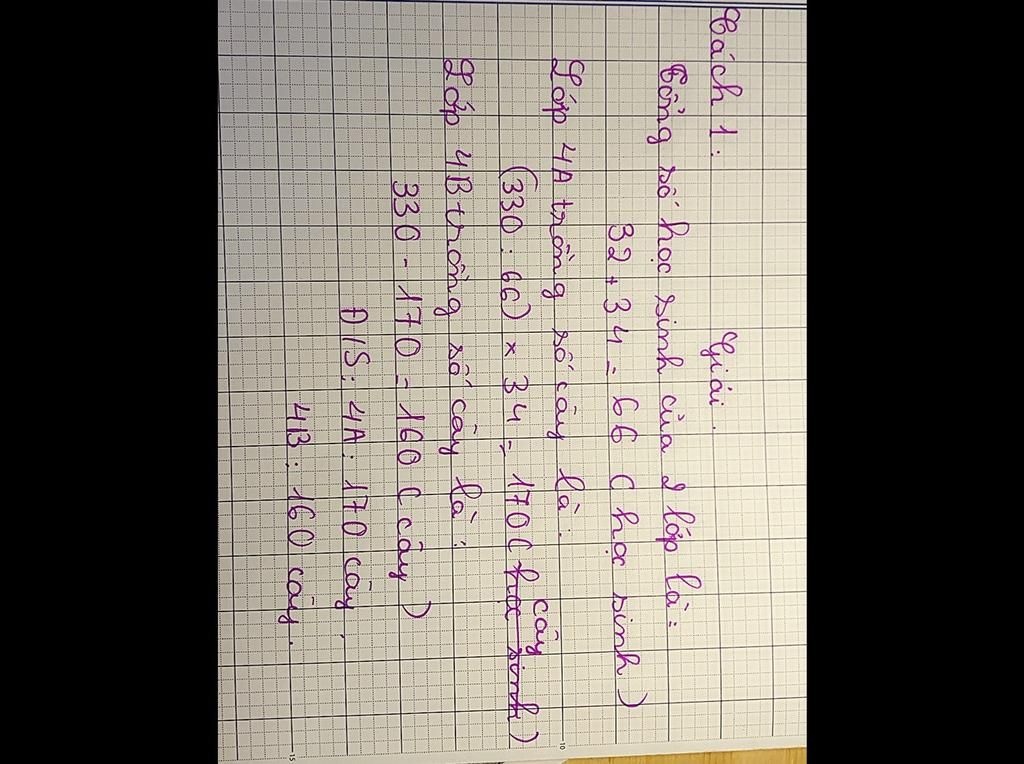 Cách 1: Giải.
Tổng số học sinh của 2 lớp là:
32 + 34 = 66 (học sinh)
Lớp 4A trồng số cây là:
(330 : 66) × 34 = 170 (học sinh) cây
Lớp 4B trồng số cây là:
330 - 170 = 160 (cây)
Đ/S: 4A: 170 cây.
4B: 160 cây.
10
15